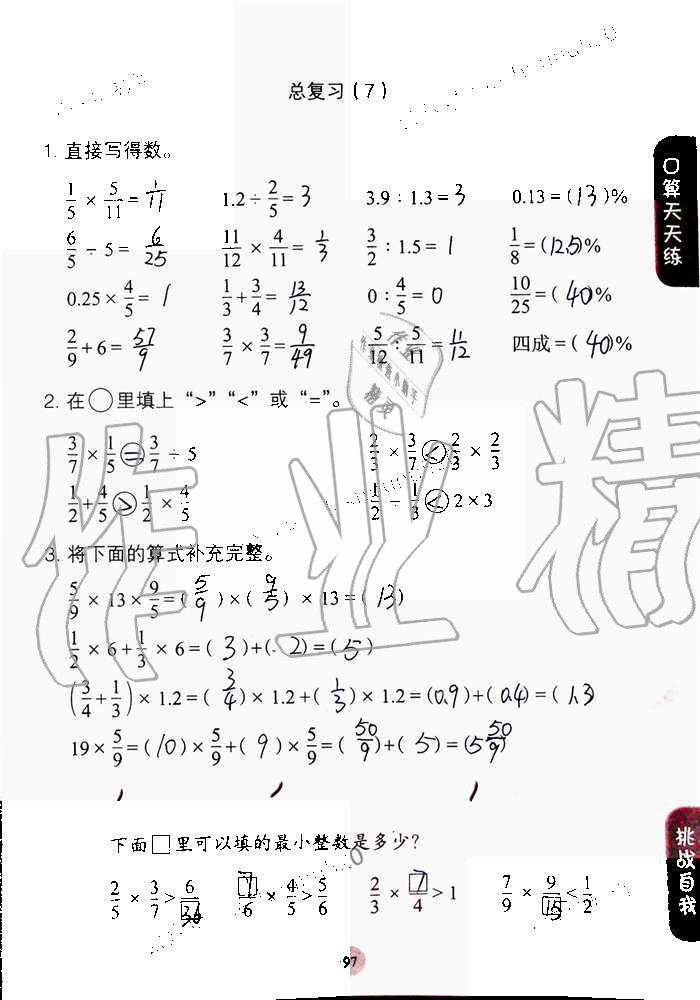 总复习(7)
1. 直接写得数。
1/5 × 5/11 = 1/11  1.2÷2/5=3  3.9：1.3=3  0.13=(13)%
6/5 ÷ 5 = 6/25  11/12 × 4/11 = 1/3  3/2：1.5=1  1/8=(12.5)%
0.25 × 4/5 = 1  1/3+3/4=13/12  0：4/5=0  10/25=(40)%
2/9+6=57/9  3/7 × 3/7 = 9/49  5/12：5/11=11/12  四成=(40)%
2. 在○里填上“>”“<”或“=”。
3/7 × 1/5 = 3/7 ÷ 5  2/3 × 3/7 < 2/3 × 2/3
1/2+4/5 > 1/2 × 4/5  1/2 ÷ 1/3 < 2×3
3. 将下面的算式补充完整。
5/9 × 13 × 9/5=(5/9)×(9/5)×13=(13)
1/2 × 6+1/3 × 6=(3)+(2)=(5)
(3/4+1/3)×1.2=(3/4)×1.2+(1/3)×1.2=(0.9)+(0.4)=(1.3)
19×5/9=(10)×5/9+(9)×5/9=(50/9)+(5)=(5 50/9)
下面□里可以填的最小整数是多少?
2/5 × 3/7>6/  7/6 × 4/5>5/6  2/3 × 7/4>1  7/9 × 9/15<1/2
97
口算天天练
挑战自我
作业精